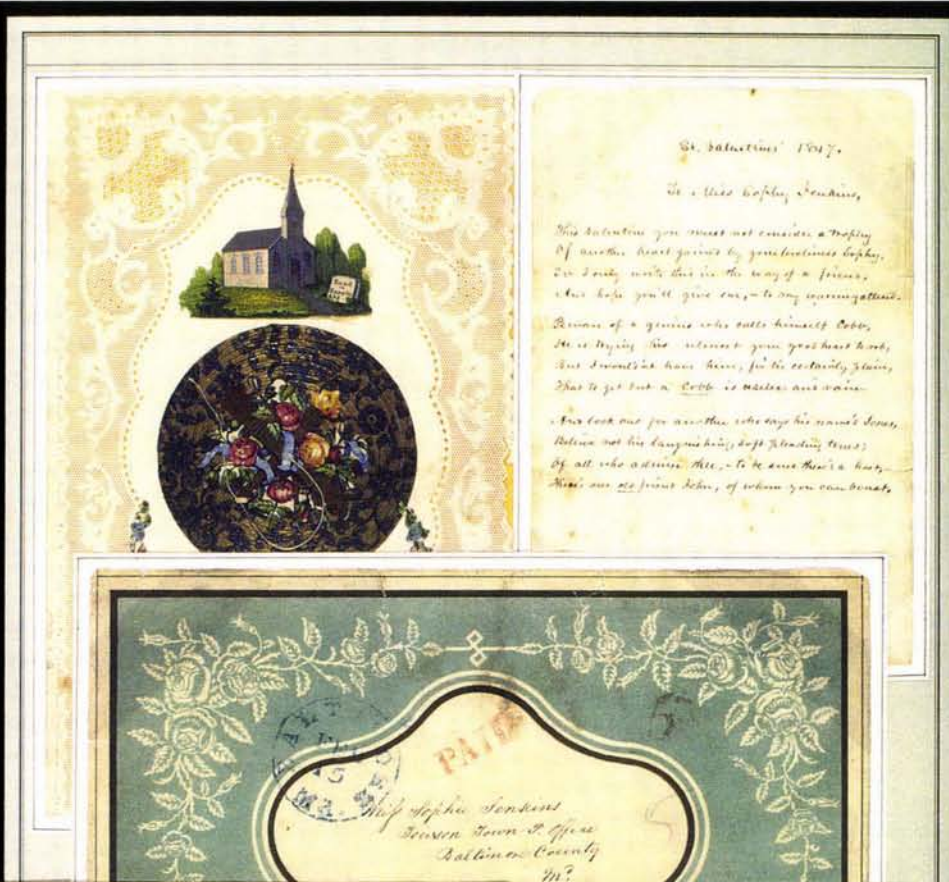 St. Valentines' 1847.
To Miss Sophy Jenkins,
This Valentine you must not consider a trophy
Of another heart gained by your loveliness Sophy.
For I only write this in the way of a friend,
And hope you'll give ear, to my
Beware of a genius who calls himself Cobb,
He is trying his utmost your good heart to rob,
But I wouldn't have him, for tis certainly plain,
That to get but a Cobb is and vain
And look out for another who says his name's Jones,
Believe not his languishing, soft pleading tones;
Of all who admire thee, to be sure there's a host,
Here's our old friend John, of whom you can boast.
PAID
5
15
Miss Sophie Jenkins
Towson Town P. Office
Baltimore County
Md